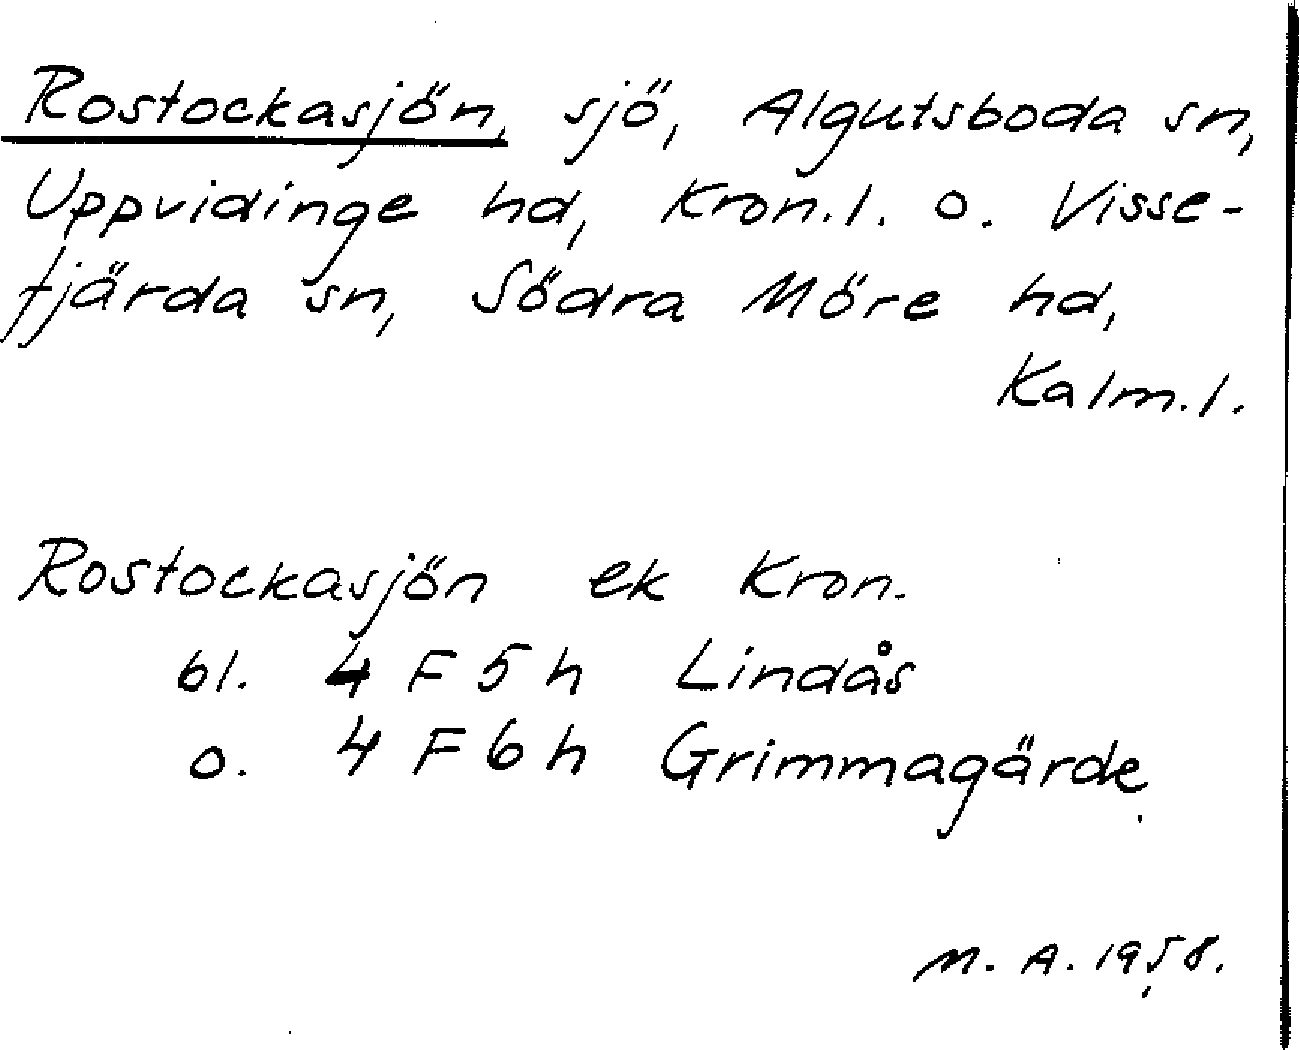 Rostockasjön, sjö, Algutsboda sn,
Uppvidinge hd, Kron.l. o. Visse-
fjärda sn, Södra Möre hd,
Kalm.l.
Rostockasjön ek Kron.
bl. 4 F 5 h Lindås
o. 4 F 6 h Grimmagärde
M. A. 1958.